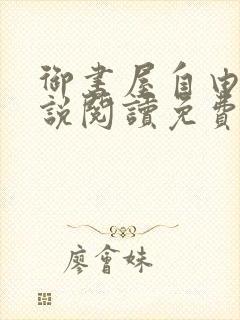 御書屋自由
說閱讀免費
廖會妹